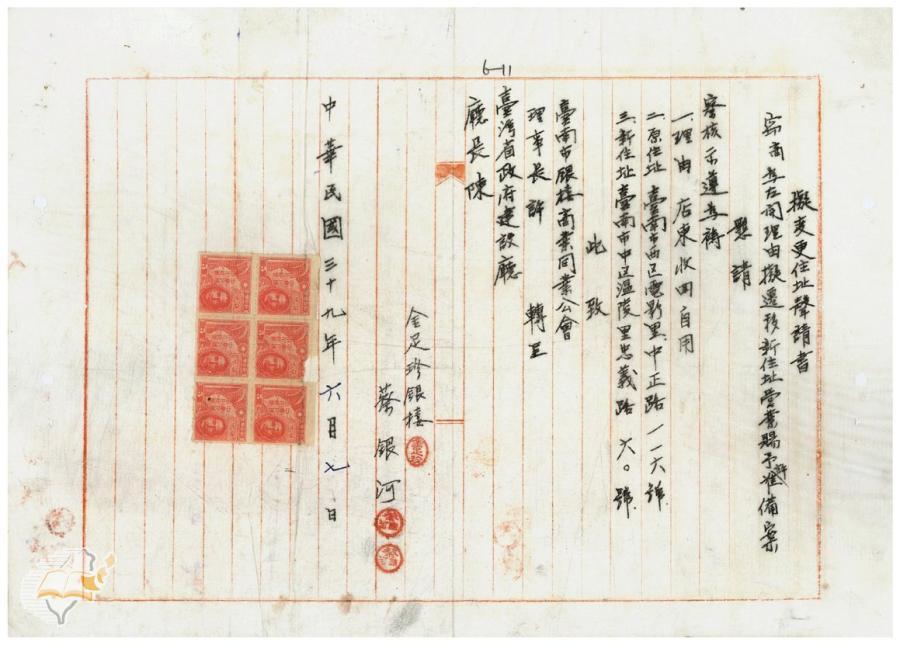 6-11
擬變更住址聲請書
窃商為左開理由擬遷移新住址營業賜予准許備案
懇請
察核示遵為禱
一、理由 店東收回自用
二、原住址 臺南市西区電影里中正路一一六號
三、新住址 臺南市中区温陵里忠義路六〇號
此致
臺南市銀樓商業同業公會
理事長 許 轉呈
臺灣省政府建設廳
廳長 陳
金足珍銀樓
蔡銀河
中華民國三十九年六月九日